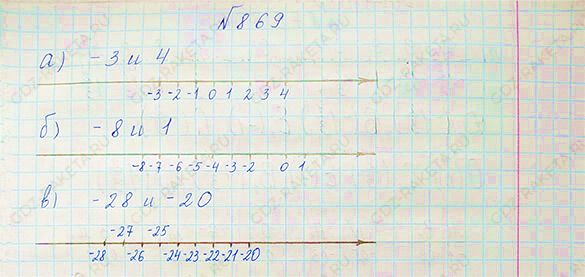 №869
а) -3 и 4
-3 -2 -1 0 1 2 3 4
б) -8 и 1
-8 -7 -6 -5 -4 -3 -2 0 1
в) -28 и -20
-27 -25
-28 -26 -24 -23 -22 -21 -20
GDZ-RAKETA.RU